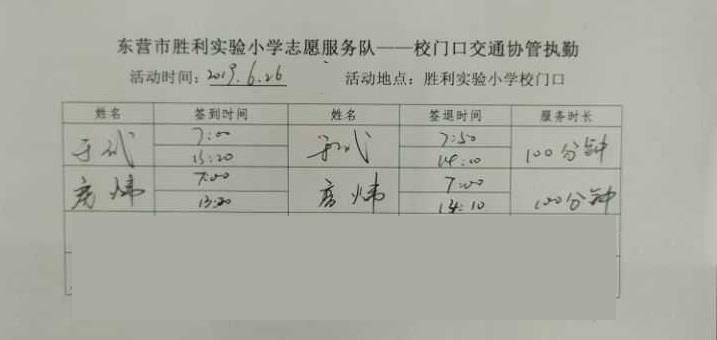 东营市胜利实验小学志愿服务队——校门口交通协管执勤
活动时间：2019.6.26 活动地点：胜利实验小学校门口
姓名 签到时间 姓名 签退时间 服务时长
7:00 7:50
13:20 14:10 100分钟
7:00
13:20 14:10 100分钟